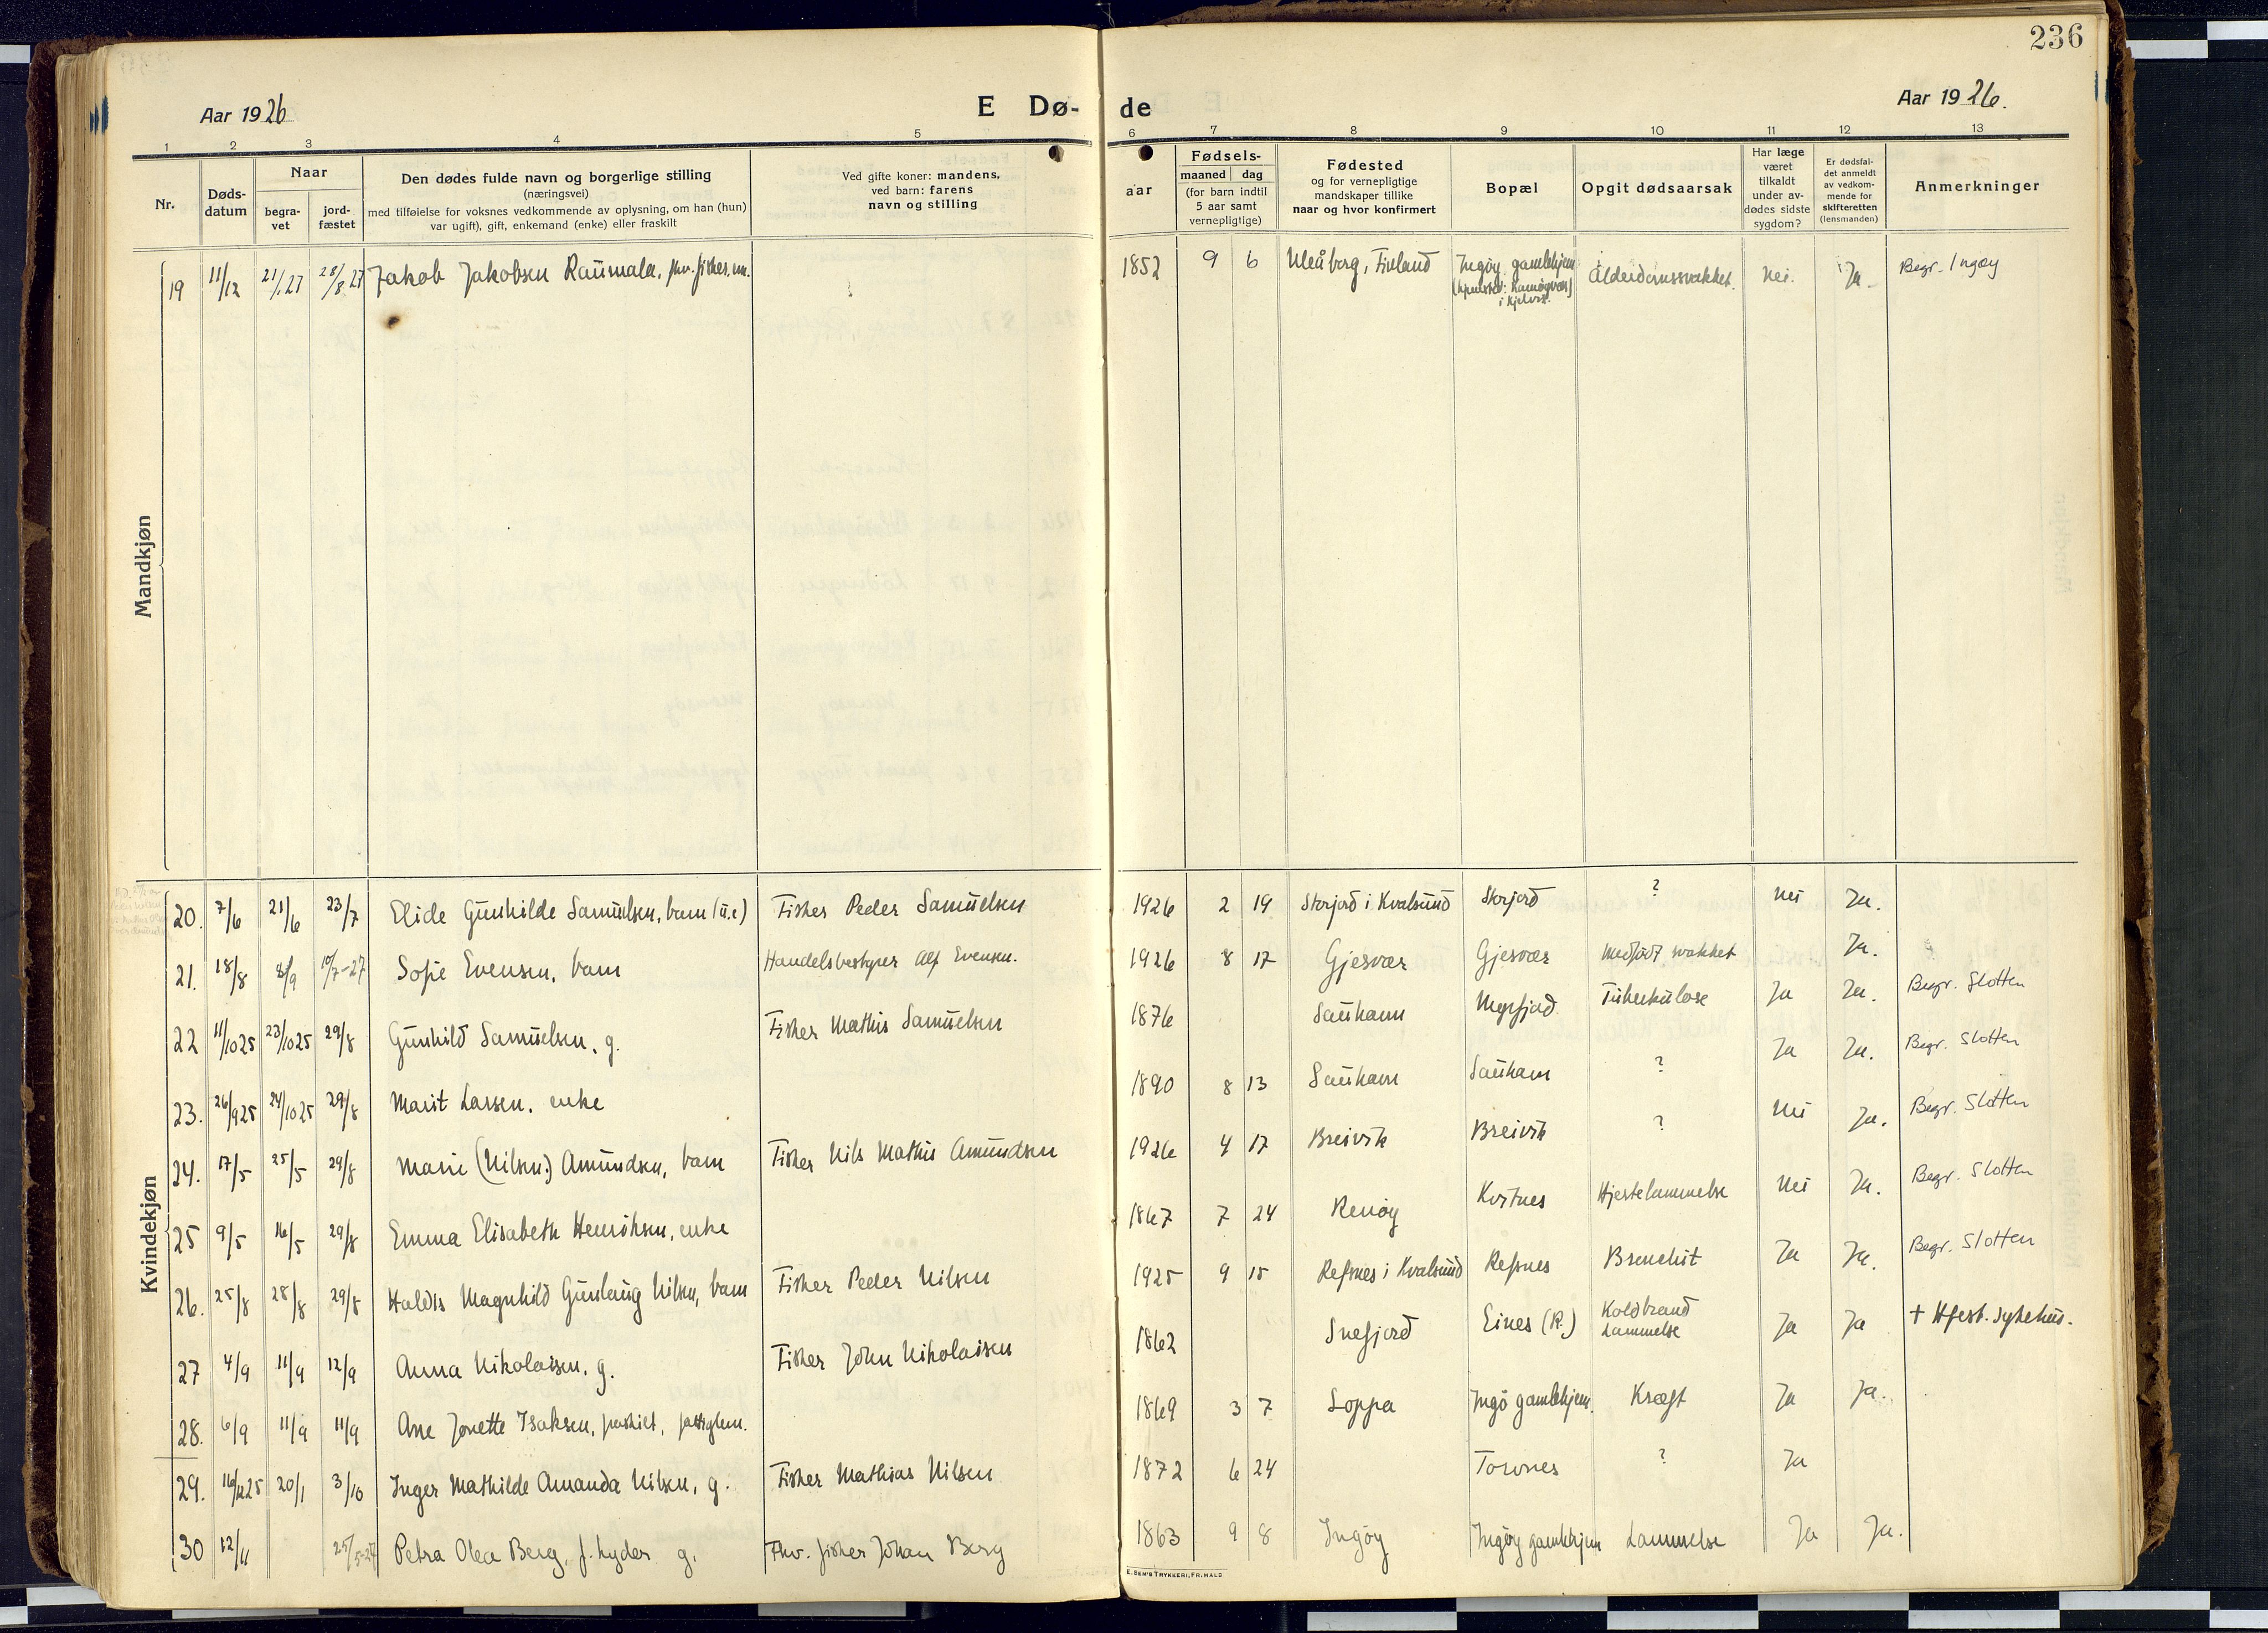 236
Aar 1926
E Dø-
de
Aar 1926.
1 2 3 4 5 6 7 8 9 10 11 12 13
Nr.
Døds-
datum
Naar
begra-
vet
jord-
fæstet
Den dødes fulde navn og borgerlige stilling
(næringsvei)
med tilføielse for voksnes vedkommende av oplysning, om han (hun)
var ugift), gift, enkemand (enke) eller fraskilt
Ved gifte koner: mandens,
ved barn: farens
navn og stilling
aar
Fødsels-
maaned dag
(for barn indtil
5 aar samt
vernepligtige)
Fødested
og for vernepligtige
mandskaper tillike
naar og hvor konfirmert
Bopæl
Opgit dødsaarsak
Har læge
været
tilkaldt
under av-
dødes sidste
sygdom?
Er dødsfal-
det anmeldt
av vedkom-
mende for
skifteretten
(lensmanden)
Anmerkninger
Mandkjøn
19 11/12 21/1 27 28/8 27 Jakob Jakobsen Raumala, fhv. fisker, um. 1852 9 6 Uleåborg, Finland Ingøy gamlehjem Alderdomssvakhet. Nei. Ja. Begr. Ingøy
i Kjelvik
Kvindekjøn
20. 7/6 21/6 23/7 Elide Gunhilde Samuelsen, barn (u.e) Fisker Peder Samuelsen 1926 2 19 Storjord i Kvalsund Storjord ? Nei Ja.
21. 18/8 8/9 10/7-27 Sofie Evensen, barn Handelsbestyrer Alf Evensen. 1926 8 17 Gjesvær Gjesvær Medfødt svakhet Ja.
22 11/10 25 23/10 25 29/8 Gunhild Samuelsen, g. Fisker Mathis Samuelsen 1876 Sauhamn Myrfjord Tuberkulose Ja Ja. Begr. Slotten
23. 26/9 25 24/10 25 29/8 Marit Larsen, enke 1890 8 13 Sauhamn Sauhamn ? Ja Ja. Begr. Slotten
24. 17/5 25/5 29/8 Marie (Nilsen) Amundsen, barn Fisker Nils Mathis Amundsen 1926 4 17 Breivik Breivik ? Nei Ja. Begr. Slotten
25 9/5 16/5 29/8 Emma Elisabeth Henriksen, enke 1867 7 24 Renøy Kvitnes Hjertelammelse Nei Ja. Begr. Slotten
26. 25/8 28/8 29/8 Haldis Magnhild Gunlaug Nilsen, barn Fisker Peder Nilsen 1925 9 15 Refsnes i Kvalsund Refsnes Bronchit Ja Ja. Begr. Slotten
27 4/9 11/9 12/9 Anna Nikolaisen, g. Fisker John Nikolaisen 1862 Snefjord Eines (R.) Koldbrand Lammelse Ja Ja + Hfest. sykehus.
28. 6/9 11/9 11/9 Ane Jonette Isaksen, fraskilt, fattiglem. 1869 3 7 Loppa Ingø gamlehjem. Kræft Ja Ja.
29. 16/12 25 20/1 3/10 Inger Mathilde Amanda Nilsen, g. Fisker Mathias Nilsen 1872 6 24 Torvnes ? Ja
30 12/11 25/5-27 Petra Olea Berg, f. Lyder g. Fhv. fisker Johan Berg 1863 9 8 Ingøy Ingøy gamlehjem Lammelse Ja Ja.
E. SEM'S TRYKKERI, FR. HALD